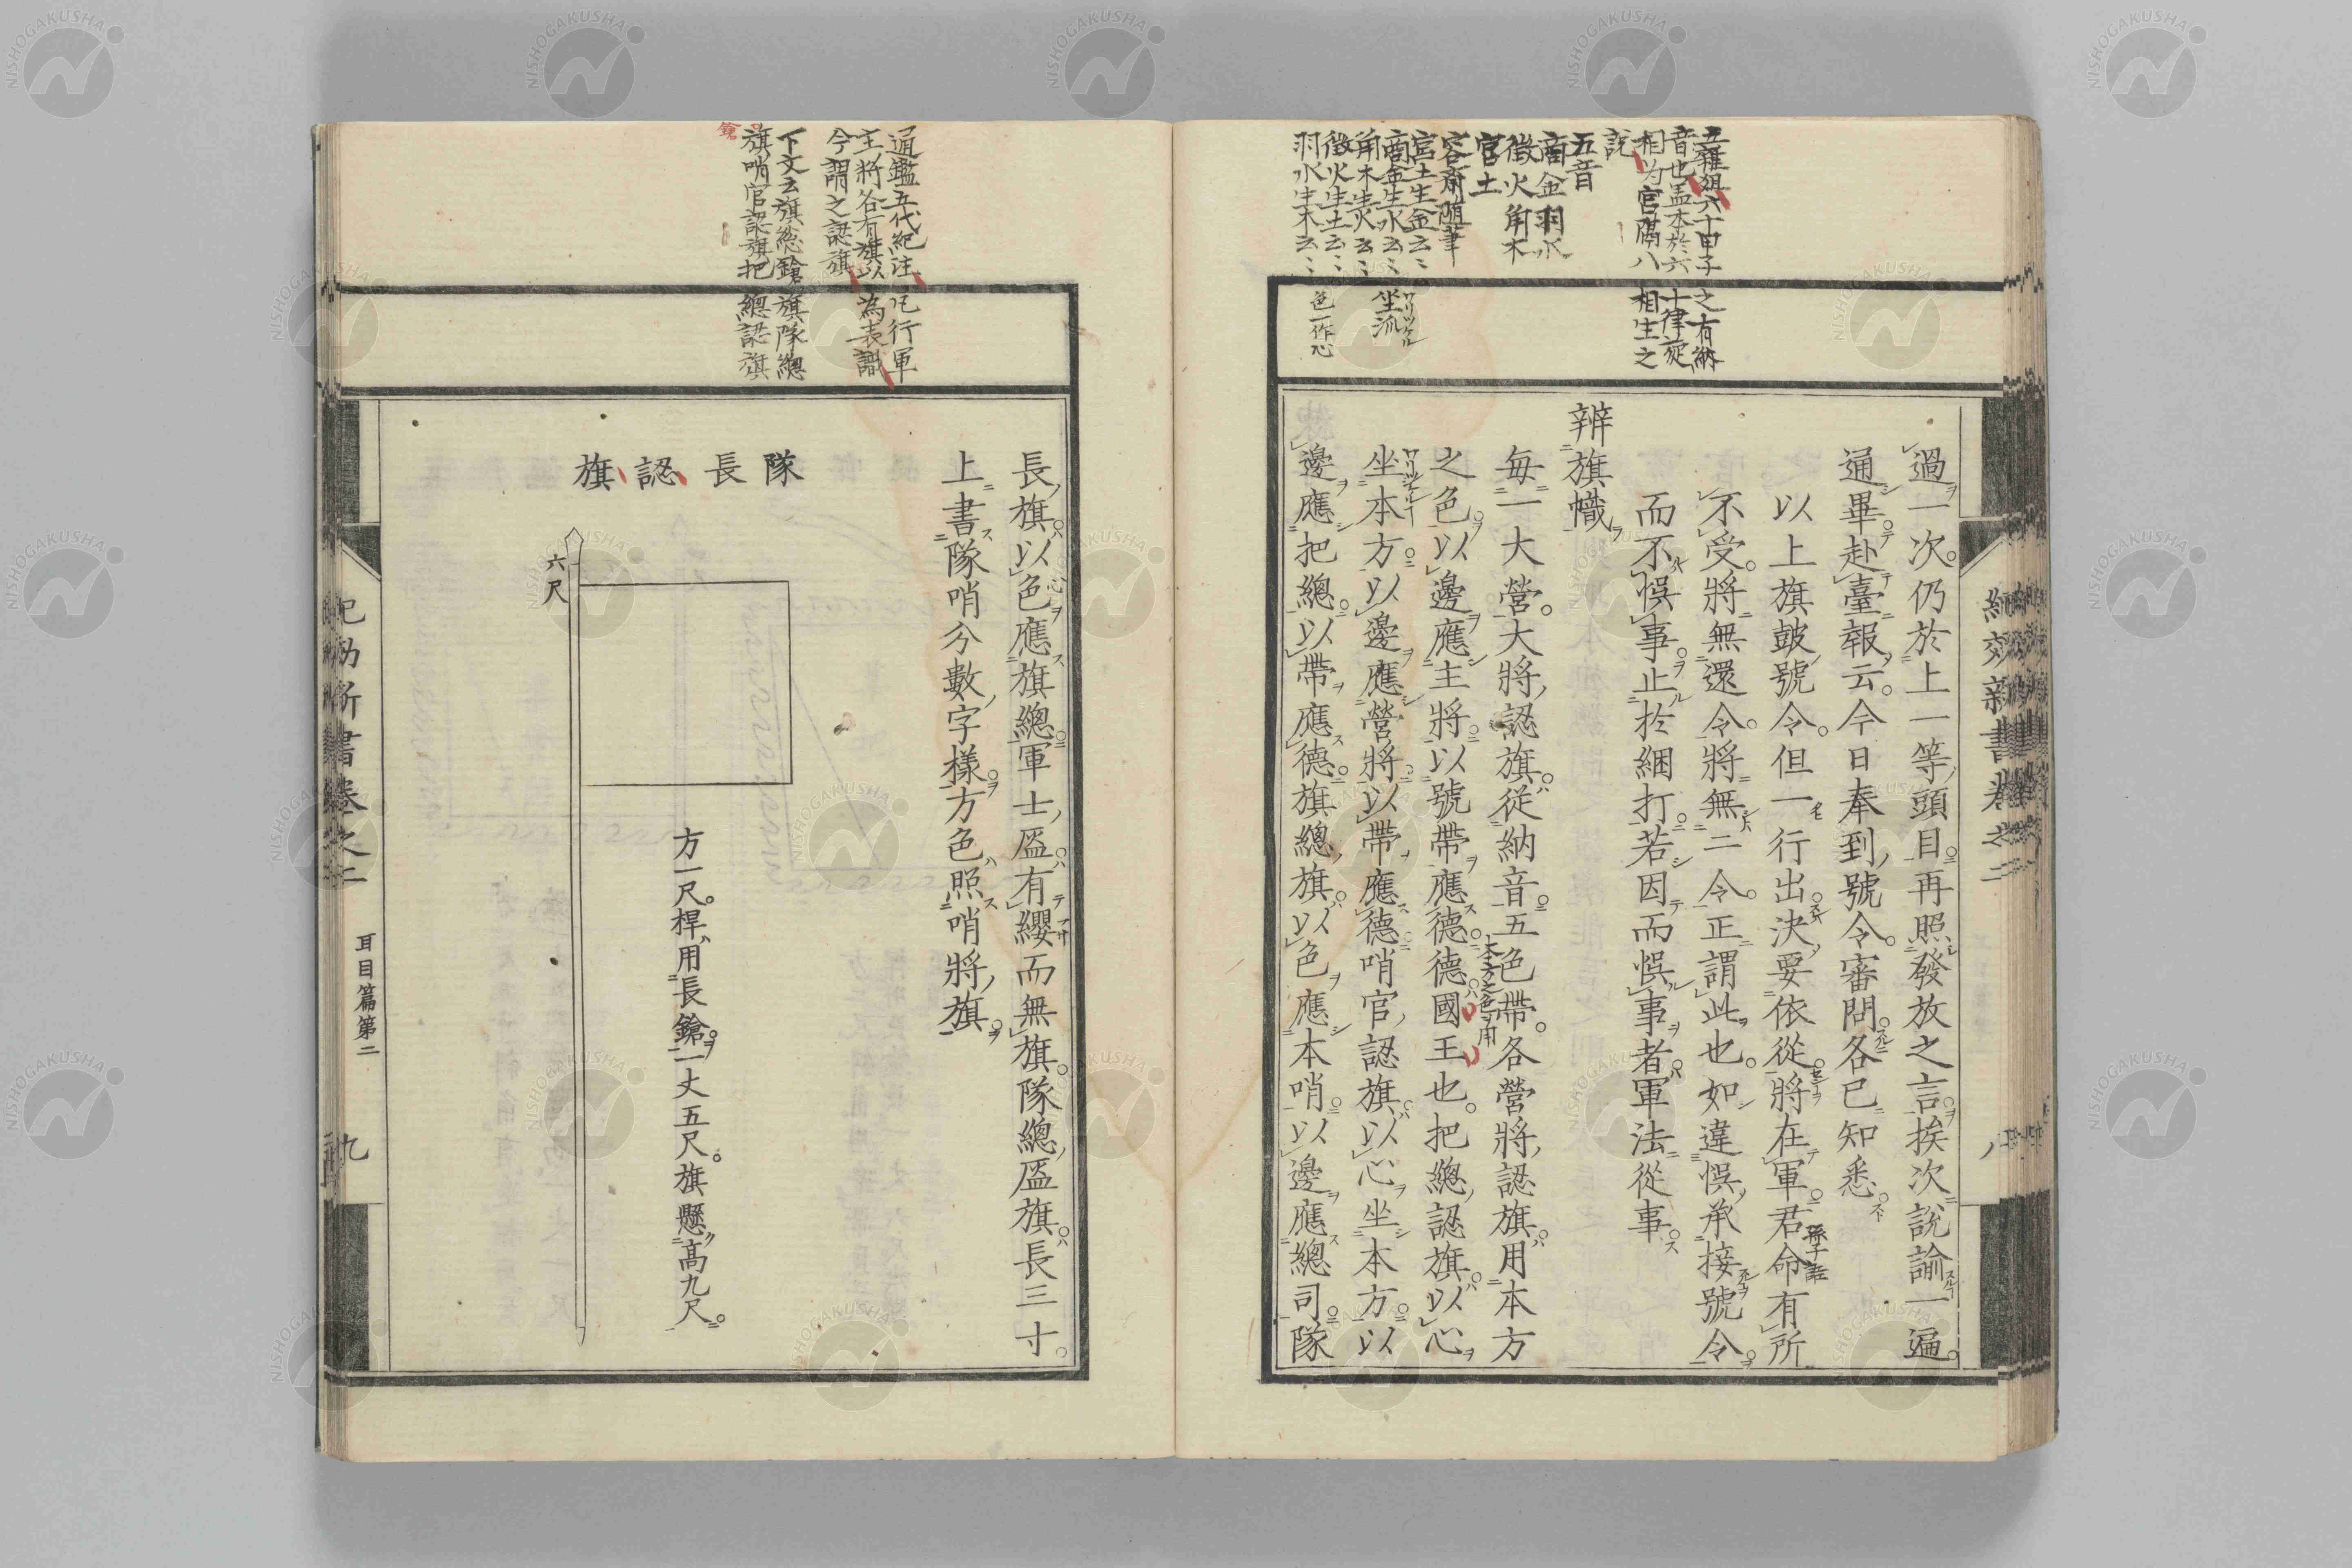 五雜俎六十甲子之有納
音也盖本於六十律旋
相為宮隔八相生之
說
五音
商金羽水
徵火角木
宮土
容齋隨筆
宮土生金云〻
商金生水云〻
角木生火云〻
徵火生土云〻
羽水生木云〻
坐派
色一作心
過一次。仍於上一等頭目。再照發放之言。挨次說諭一遍。
通畢。赴臺報云。今日奉到號令。審問。各已知悉。
以上旗皷號令。但一行出決要依從。將在軍。君命有所
孫子語
不受。將無還令。將無二令。正謂此也。如違悞承接號令。
而不悞事。止於綑打。若因而悞事者。軍法從事。
辨旗幟
每一大營。大將認旗。從納音。五色帶。各營將認旗。用本方
本方之色ヲ用
之色。以邊應主將。以號帶應德。德國王也。把總認旗。以心
坐本方。以邊應營將。以帶應德。哨官認旗。以心坐本方。以
邊應把總。以帶應德。旗總旗。以色應本哨。以邊應總司。隊
紀効新書卷之二
八
通鑑五代紀注凡行軍
主將各有旗以為表識
今謂之認旗
下文云旗総鎗旗隊總
旗哨官認旗把總認旗
鎗
長旗。以色應旗總。軍士盔。有纓而無旗。隊總盔旗。長三寸。
心
上書隊哨分數字樣。方色照哨將旗。
隊長認旗
六尺
方一尺。桿用長鎗。一丈五尺。旗懸高九尺。
紀効新書卷之二
耳目篇第二
九
NISHOGAKUSHA